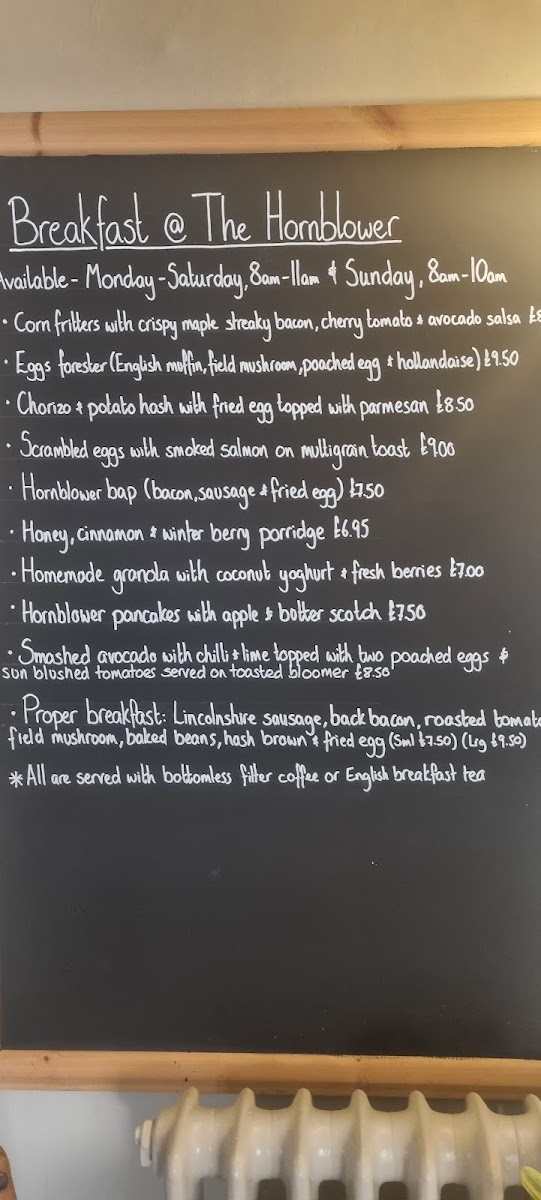 Breakfast @ The Hornblower
Available - Monday - Saturday, 8am-11am & Sunday, 8am-10am
· Corn fritters with crispy maple streaky bacon, cherry tomato & avocado salsa
· Eggs forester (English muffin, field mushroom, poached egg & hollandaise) £9.50
· Chorizo & potato hash with fried egg topped with parmesan £8.50
· Scrambled eggs with smoked salmon on multigrain toast £9.00
· Hornblower bap (bacon, sausage & fried egg) £7.50
· Honey, cinnamon & winter berry porridge £6.95
· Homemade granola with coconut yoghurt & fresh berries £7.00
· Hornblower pancakes with apple & botter scotch £7.50
· Smashed avocado with chilli & lime topped with two poached eggs &
sun blushed tomatoes served on toasted bloomer £8.50
· Proper breakfast: Lincolnshire sausage, back bacon, roasted tomato
field mushroom, baked beans, hash brown & fried egg (Sml £7.50) (Lrg £9.50)
* All are served with bottomless filter coffee or English breakfast tea